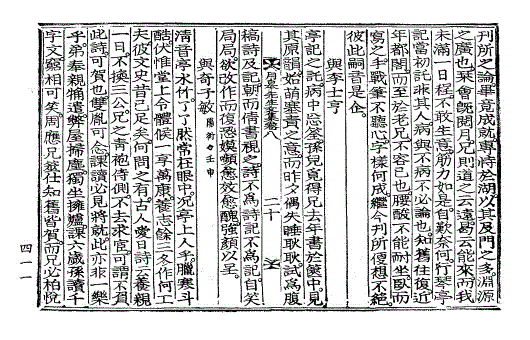 刊所之論畢竟成就專恃於湖以其及門之多淵源
之廣也來會旣閱月兄則道之云遠曷云能來而我
未滿一日程不敢生意筋力如是自歎奈何行琴亭
記當初託非其人病與不病不必論也知舊往復近
年都閣而至於老兄不容已也腰酸不能耐坐臥而
寫之手戰筆不聽心字樣何成繼今刊所便想不絶
彼此嗣音是企
與李士亨
亭記之託病中忘答孫兒竟得兄去年書於篋中見
其原韻始萌塞責之意而昨夕偶失睡耿耿試爲腹
月皐先生文集卷八 二十
稿詩及記朝而倩書視之詩不爲詩記不爲記自笑
局局欲改作而復恐嫫嚬愈效愈醜強顔以呈
與奇子敏 陽衍○壬申
淸音亭水竹了了然常在眼中况亭上人乎臘寒斗
酷伏惟堂上令體候一享萬康養志餘三冬作何工
夫彼文史昔已足矣何問之有古人愛日詩云養親
一日不換三公兄之靑袍侍側不去求官可謂不負
此詩可賀也雙胤可念課讀必見將就此亦非一樂
乎弟奉親痡遣弊屋掃塵獨坐擁爐課六歲孫讀千
字文窮相可笑周應兄仕知舊皆賀而兄必柏悅
四一一